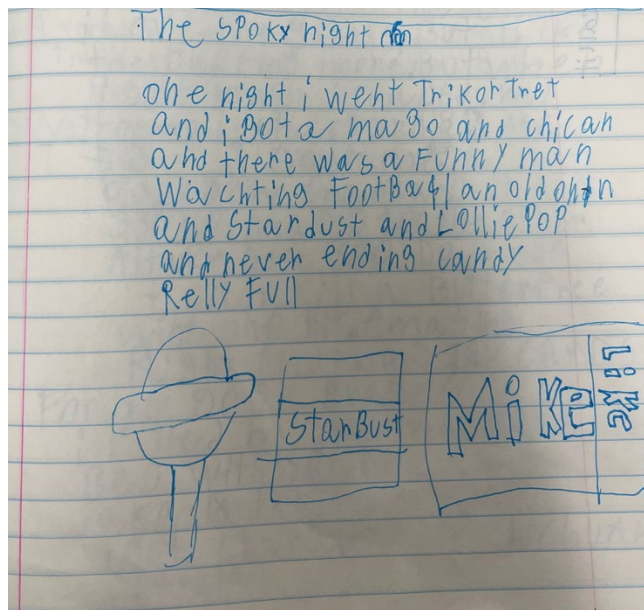 The spoky night
one night i went Trikor Tret
and i Got a mago and chican
and there was a Funny man
Wachting FootBall an old
and Stardust and Lollie Pop
and never ending candy
Relly Full
StarBust
Mike